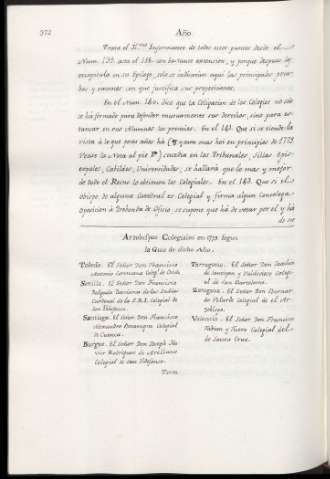 372 Año
Trata el Il.mo Informante de todos estos puntos desde el
Num. 133. asta el 184. con bastante extension, y porque despues lo
recapitula en su Epilogo, solo se indicarán aqui las principales prue-
bas y razones con que justifica sus proposiciones.
En el Num. 140. dice que la Coligacion de los Colegios no solo
se há formado para defender mutuamente sus Becas, sino para es-
tancar en sus Alumnos los premios. En el 141. Que si se tiende la
vista á lo que pocos años há (¶ y aun mas hoi en principios de 1773
Vease la Nota al pie ¶) sucedia en los Tribunales, Sillas Epis-
copales, Cabildos, Universidades, se hallará que lo mas y mejor
de todo el Reino lo obtienen los Colegiales. En el 143. Que si el
Obispo de alguna Catedral es Colegial y firma algun Concolega
Oposicion á Prebenda de Oficio se supone que há de votar por el y há
de ser
Arzobispos Colegiales en 1773. segun
la Guia de dicho Año.
Toledo. El Señor Don Francisco
Antonio Lorenzana Coleg.l de Oviedo.
Sevilla. El Señor Don Francisco
Delgado Patriarca de las Indias
Cardenal de la S.R.I. Colegial de
San Ildefonso.
Santiago. El Señor Don Francisco
Alexandro Bocanegra Colegial
de Cuenca.
Burgos. El Señor Don Joseph Xa-
vier Rodriguez de Arellano
Colegial de San Ildefonso.
Tarragona. El Señor Don Joachin
de Santiyan y Valdivieso Colegi-
al de San Bartolomé.
Zaragoza. El Señor Don Bernar-
do Velarde Colegial de el Ar-
zobispo.
Valencia. El Señor Don Francisco
Fabian y Fuero Colegial de
de Santa Cruz.